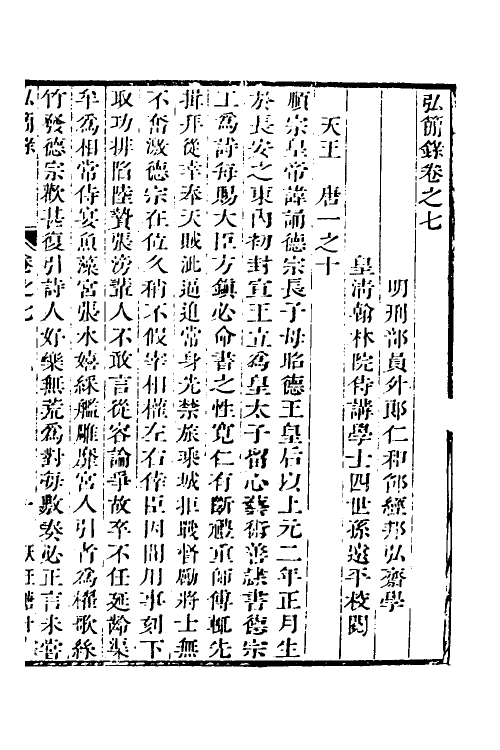 弘簡錄卷之七
明刑部員外郎仁和邵經邦弘齋學
皇淸翰林院侍講學士四世孫遠平校閱
天王　唐一之十
順宗皇帝諱誦德宗長子母昭德王皇后以上元二年正月生
於長安之東內初封宣王立爲皇太子留心藝術善隸書德宗
工爲詩每賜大臣方鎮必命書之性寬仁有斷禮重師傅輒先
拜從幸奉天賊泚逼迫常身先禁旅乘城拒戰督勵將士無
不奮激德宗在位久稍不假宰相權左右倖臣因間用事刻下
取功排陷陸贄張滂輩人不敢言從容論爭故卒不任延齡渠
牟爲相常侍宴魚藻宮張水嬉綵艦雕靡宮人引舟爲櫂歌絲
竹發德宗歡甚復引詩人好樂無荒爲對每敷奏必正言未嘗
弘簡錄　卷之七